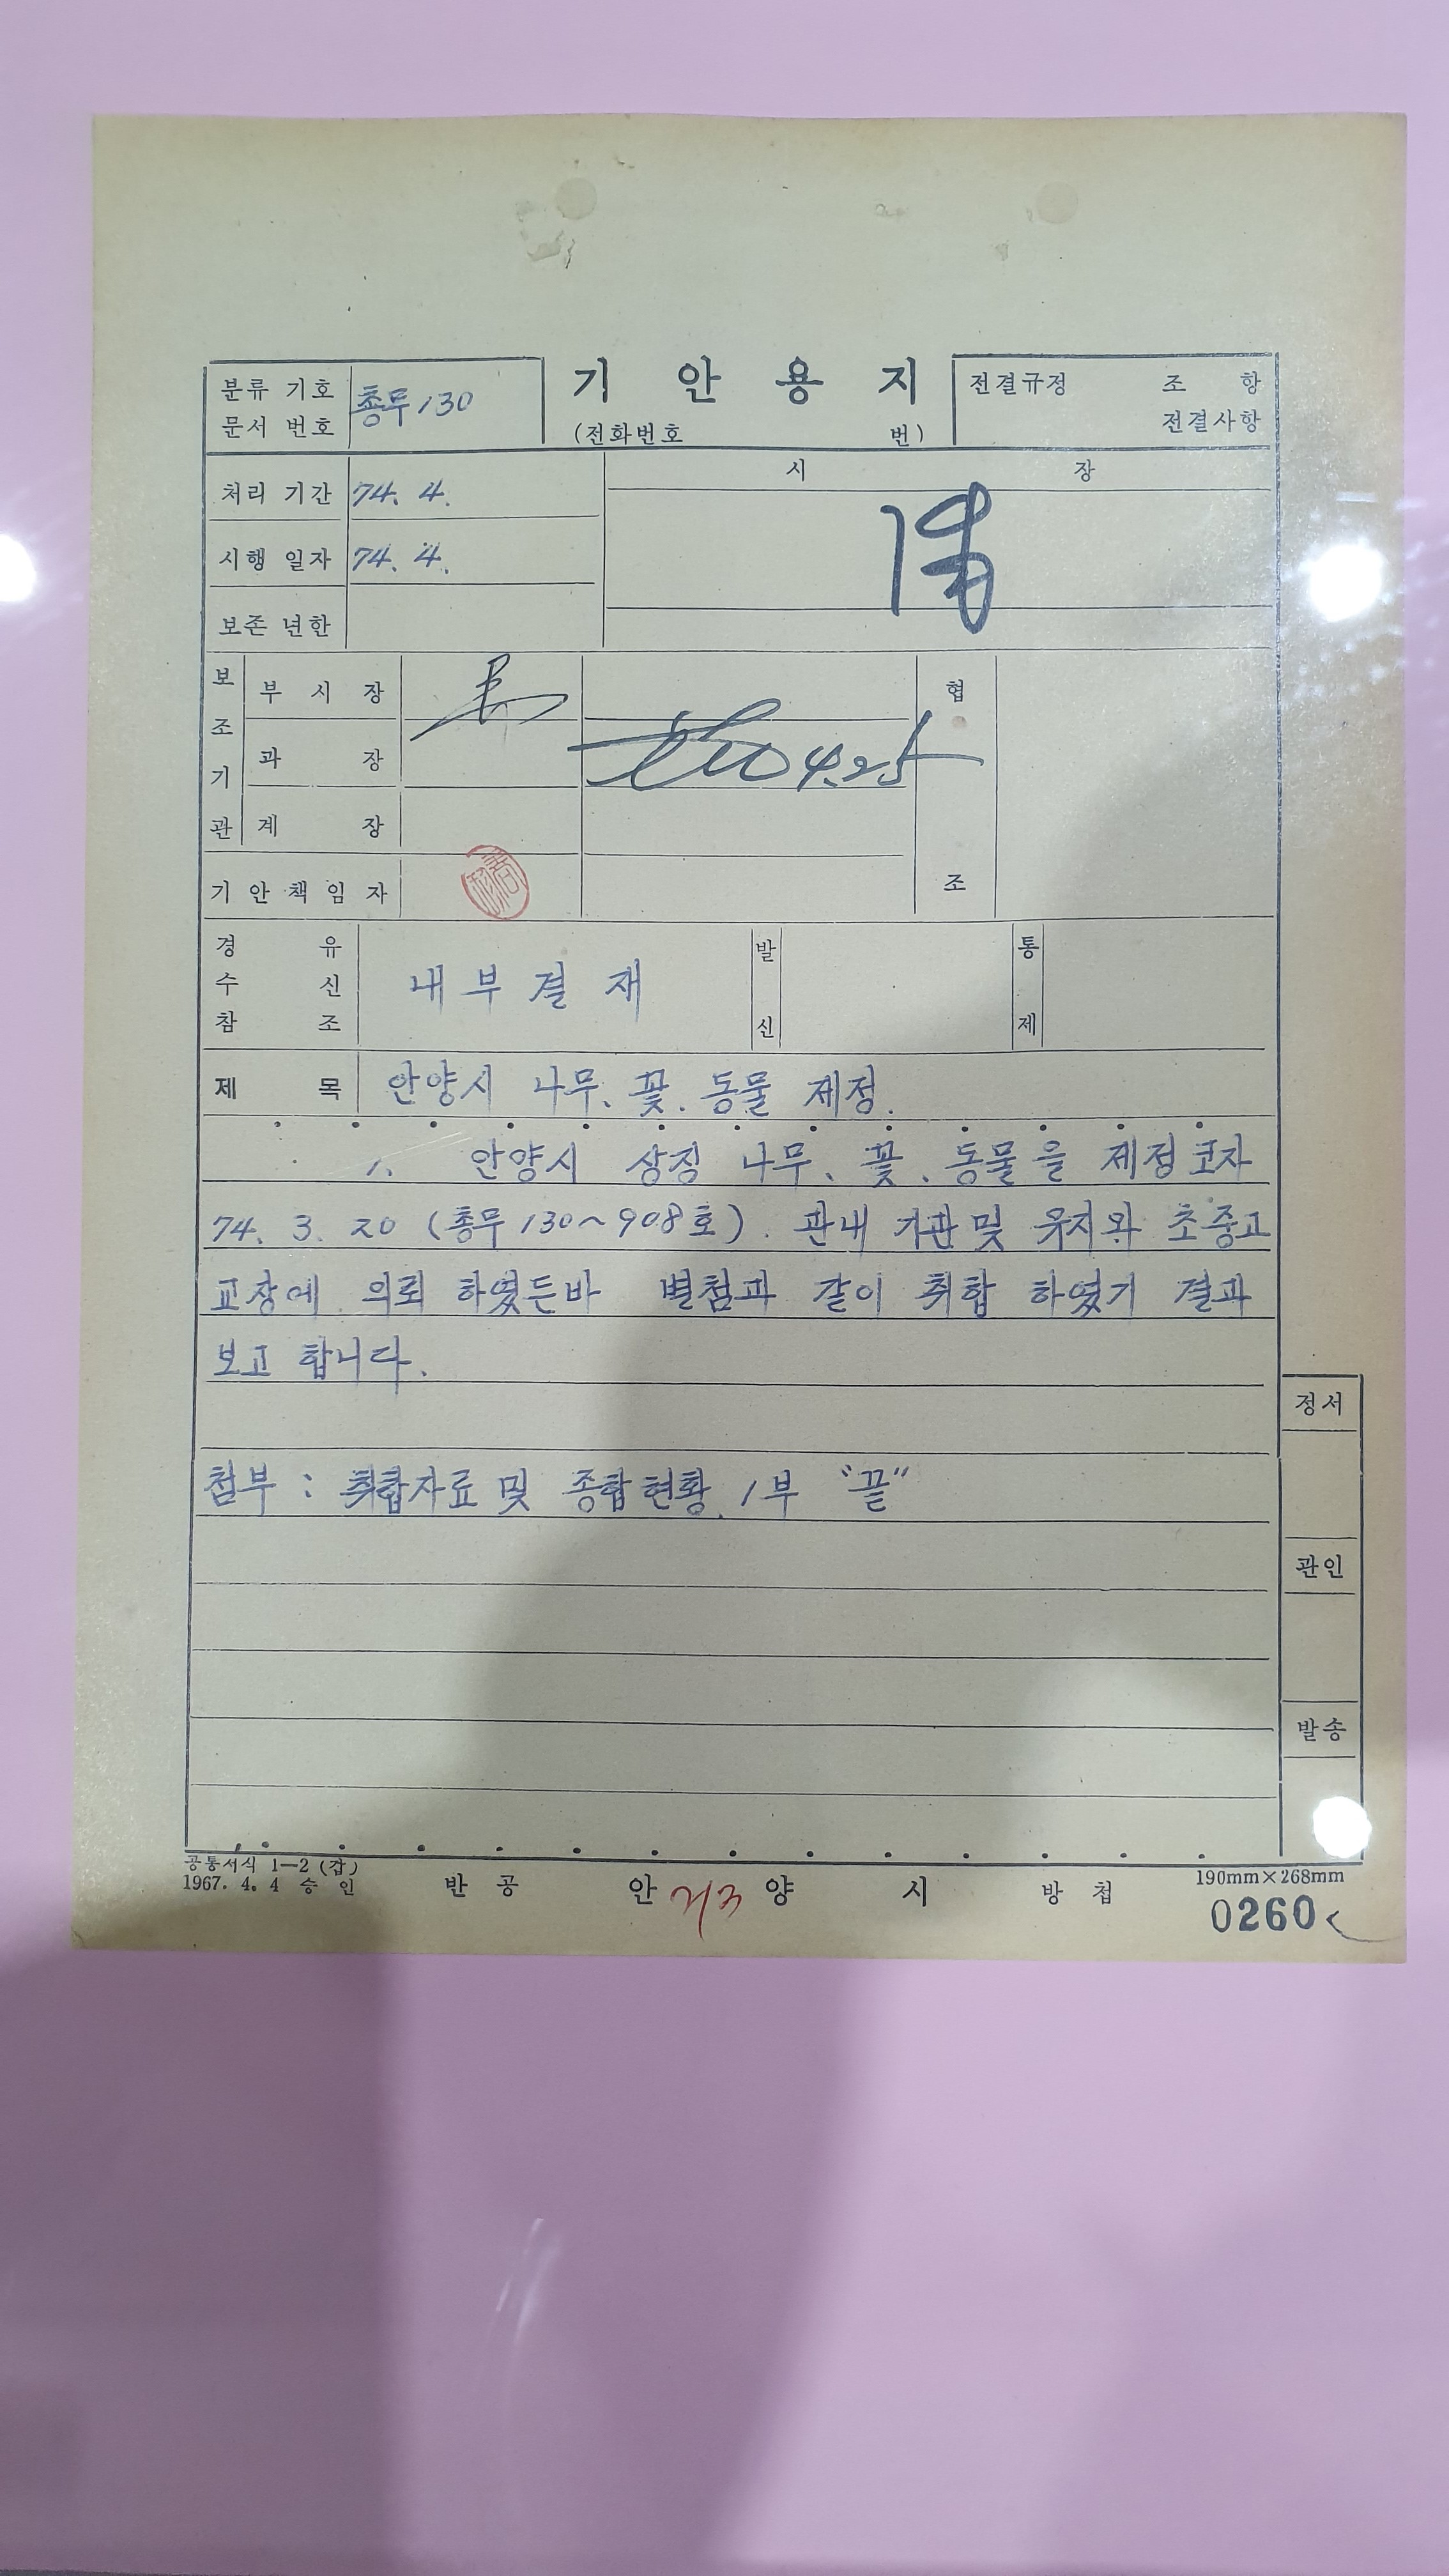 분류 기호
문서 번호
총무130
기 안 용 지
(전화번호 번)
전결규정 조 항
전결사항
처리 기간 74. 4.
시 장
시행 일자 74. 4.
보존 년한
보조기관
부 시 장
과 장
4.25
계 장
협조
기 안 책 임 자
경 유
수 신
참 조
내부결재
발신
통제
제 목 안양시 나무、꽃、동물 제정.
1. 안양시 상징 나무、꽃、동물을 제정코자
74. 3. 20 (총무130~908호). 관내 기관및 유지와 초중고
교장에 의뢰 하였든바 별첨과 같이 취합 하였기 결과
보고 합니다.
정서
첨부 : 취합자료 및 종합현황 1부 "끝"
관인
발송
공통서식 1-2 (갑)
1967. 4. 4 승 인
반 공 안 양 시 방 첩
190mm×268mm
0260